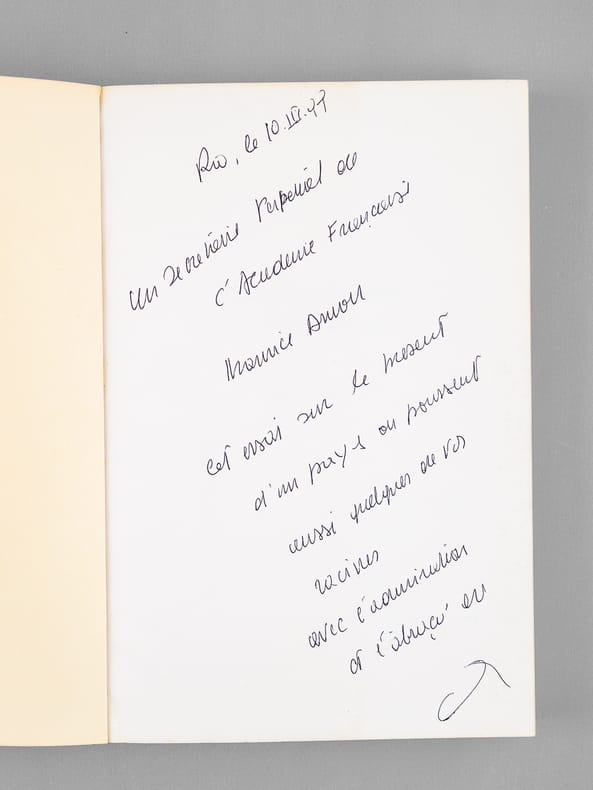 Rio, le
Un Secrétaire Perpétuel de
l'Academie Française
Maurice Druon
cet essai sur le present
d'un pays ou poussent
aussi quelques de vos
racines
avec l'admiration
et l'abraço